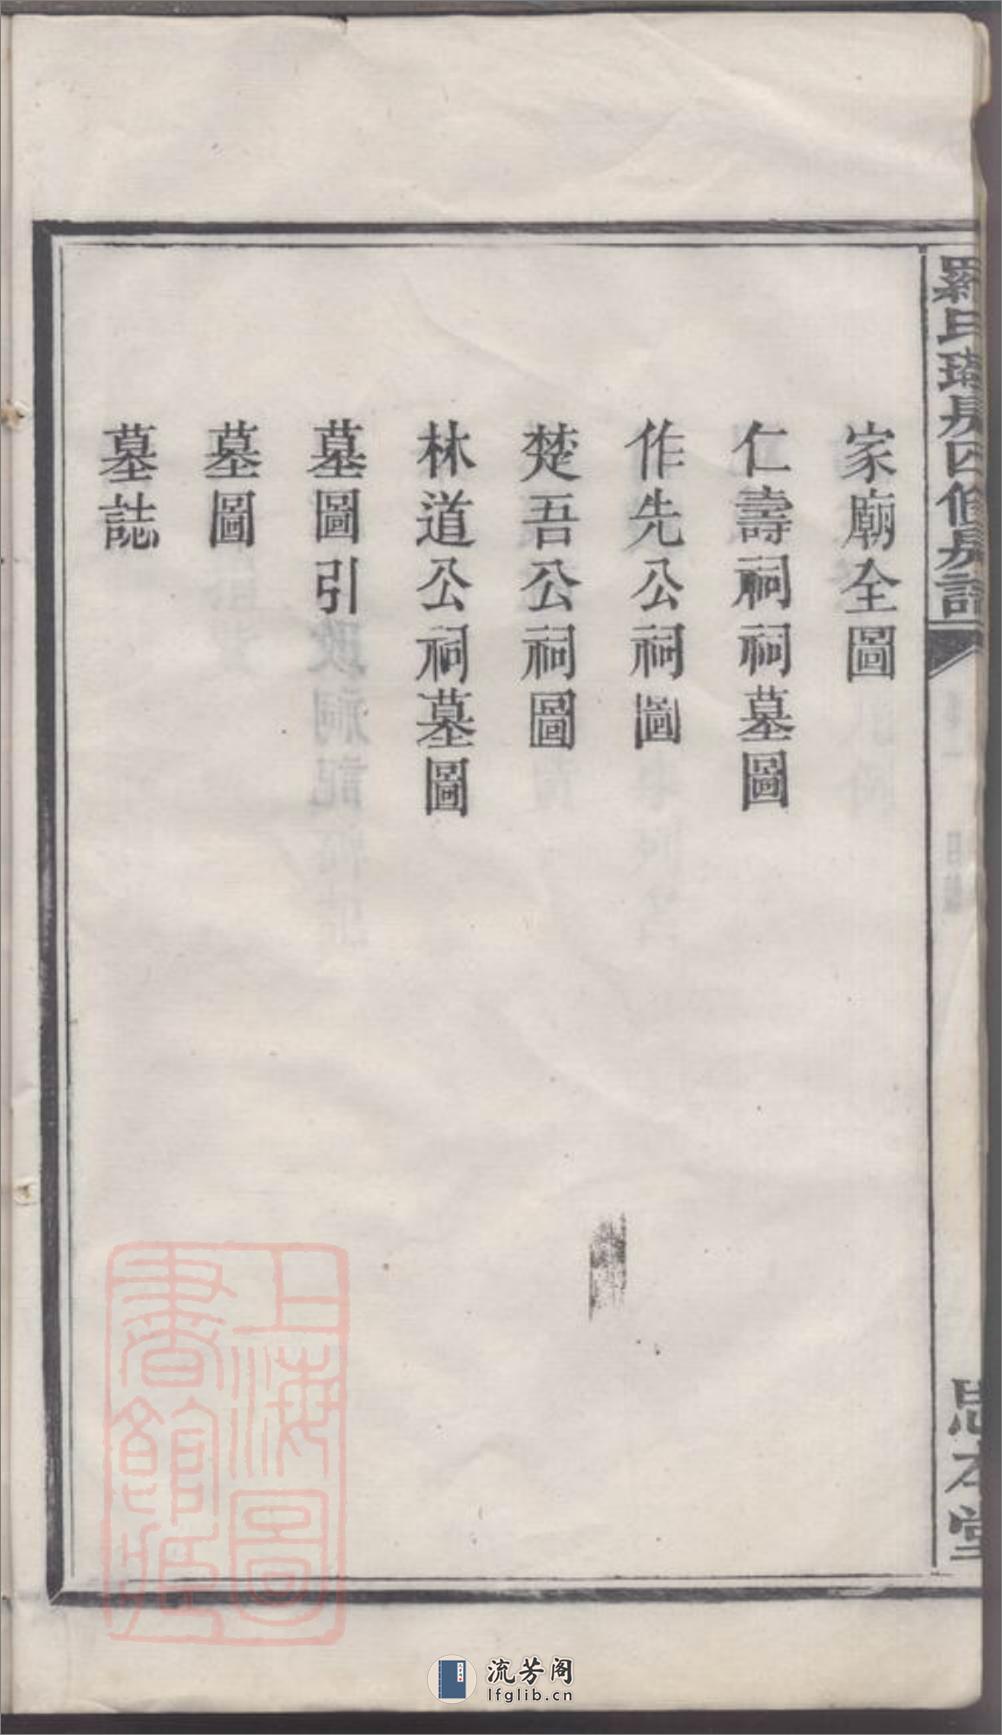 家廟全圖
仁壽祠祠墓圖
作先公祠圖
楚吾公祠圖
林道公祠墓圖
墓圖引
墓圖
墓誌
思本堂
上海圖書館藏
流芳阁
lfglib.cn